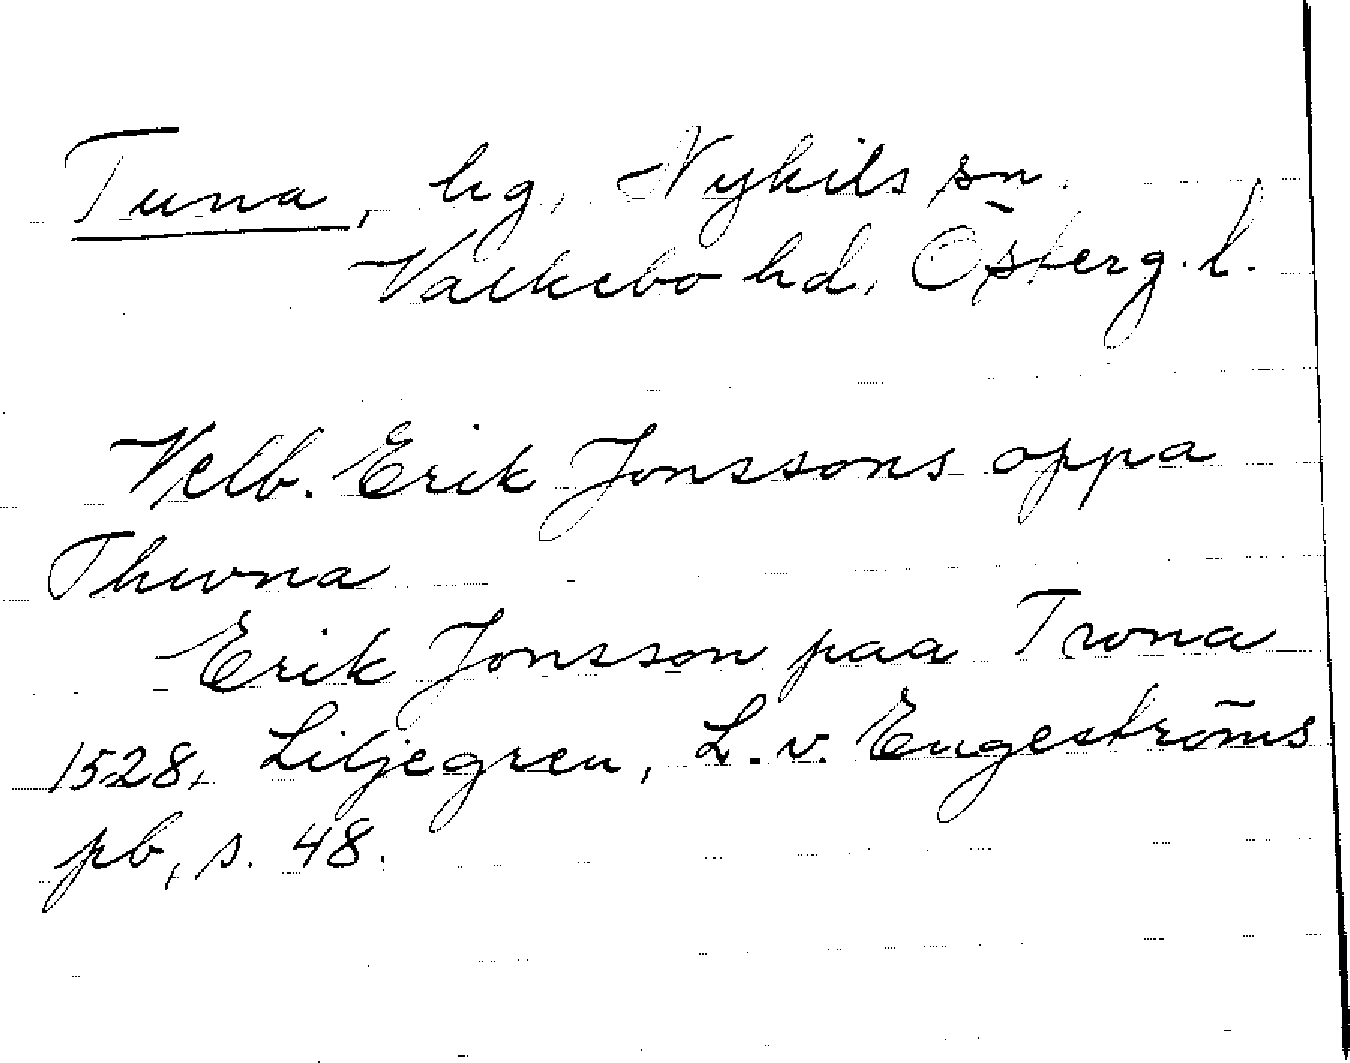 Tuna, hg, Nykils sn.
Valkebo hd, Österg. l.
Velb. Erik Jonssons oppa
Thwna
Erik Jonsson paa Twna
1528. Liljegren, L. v. Engeströms
pb, s. 48.